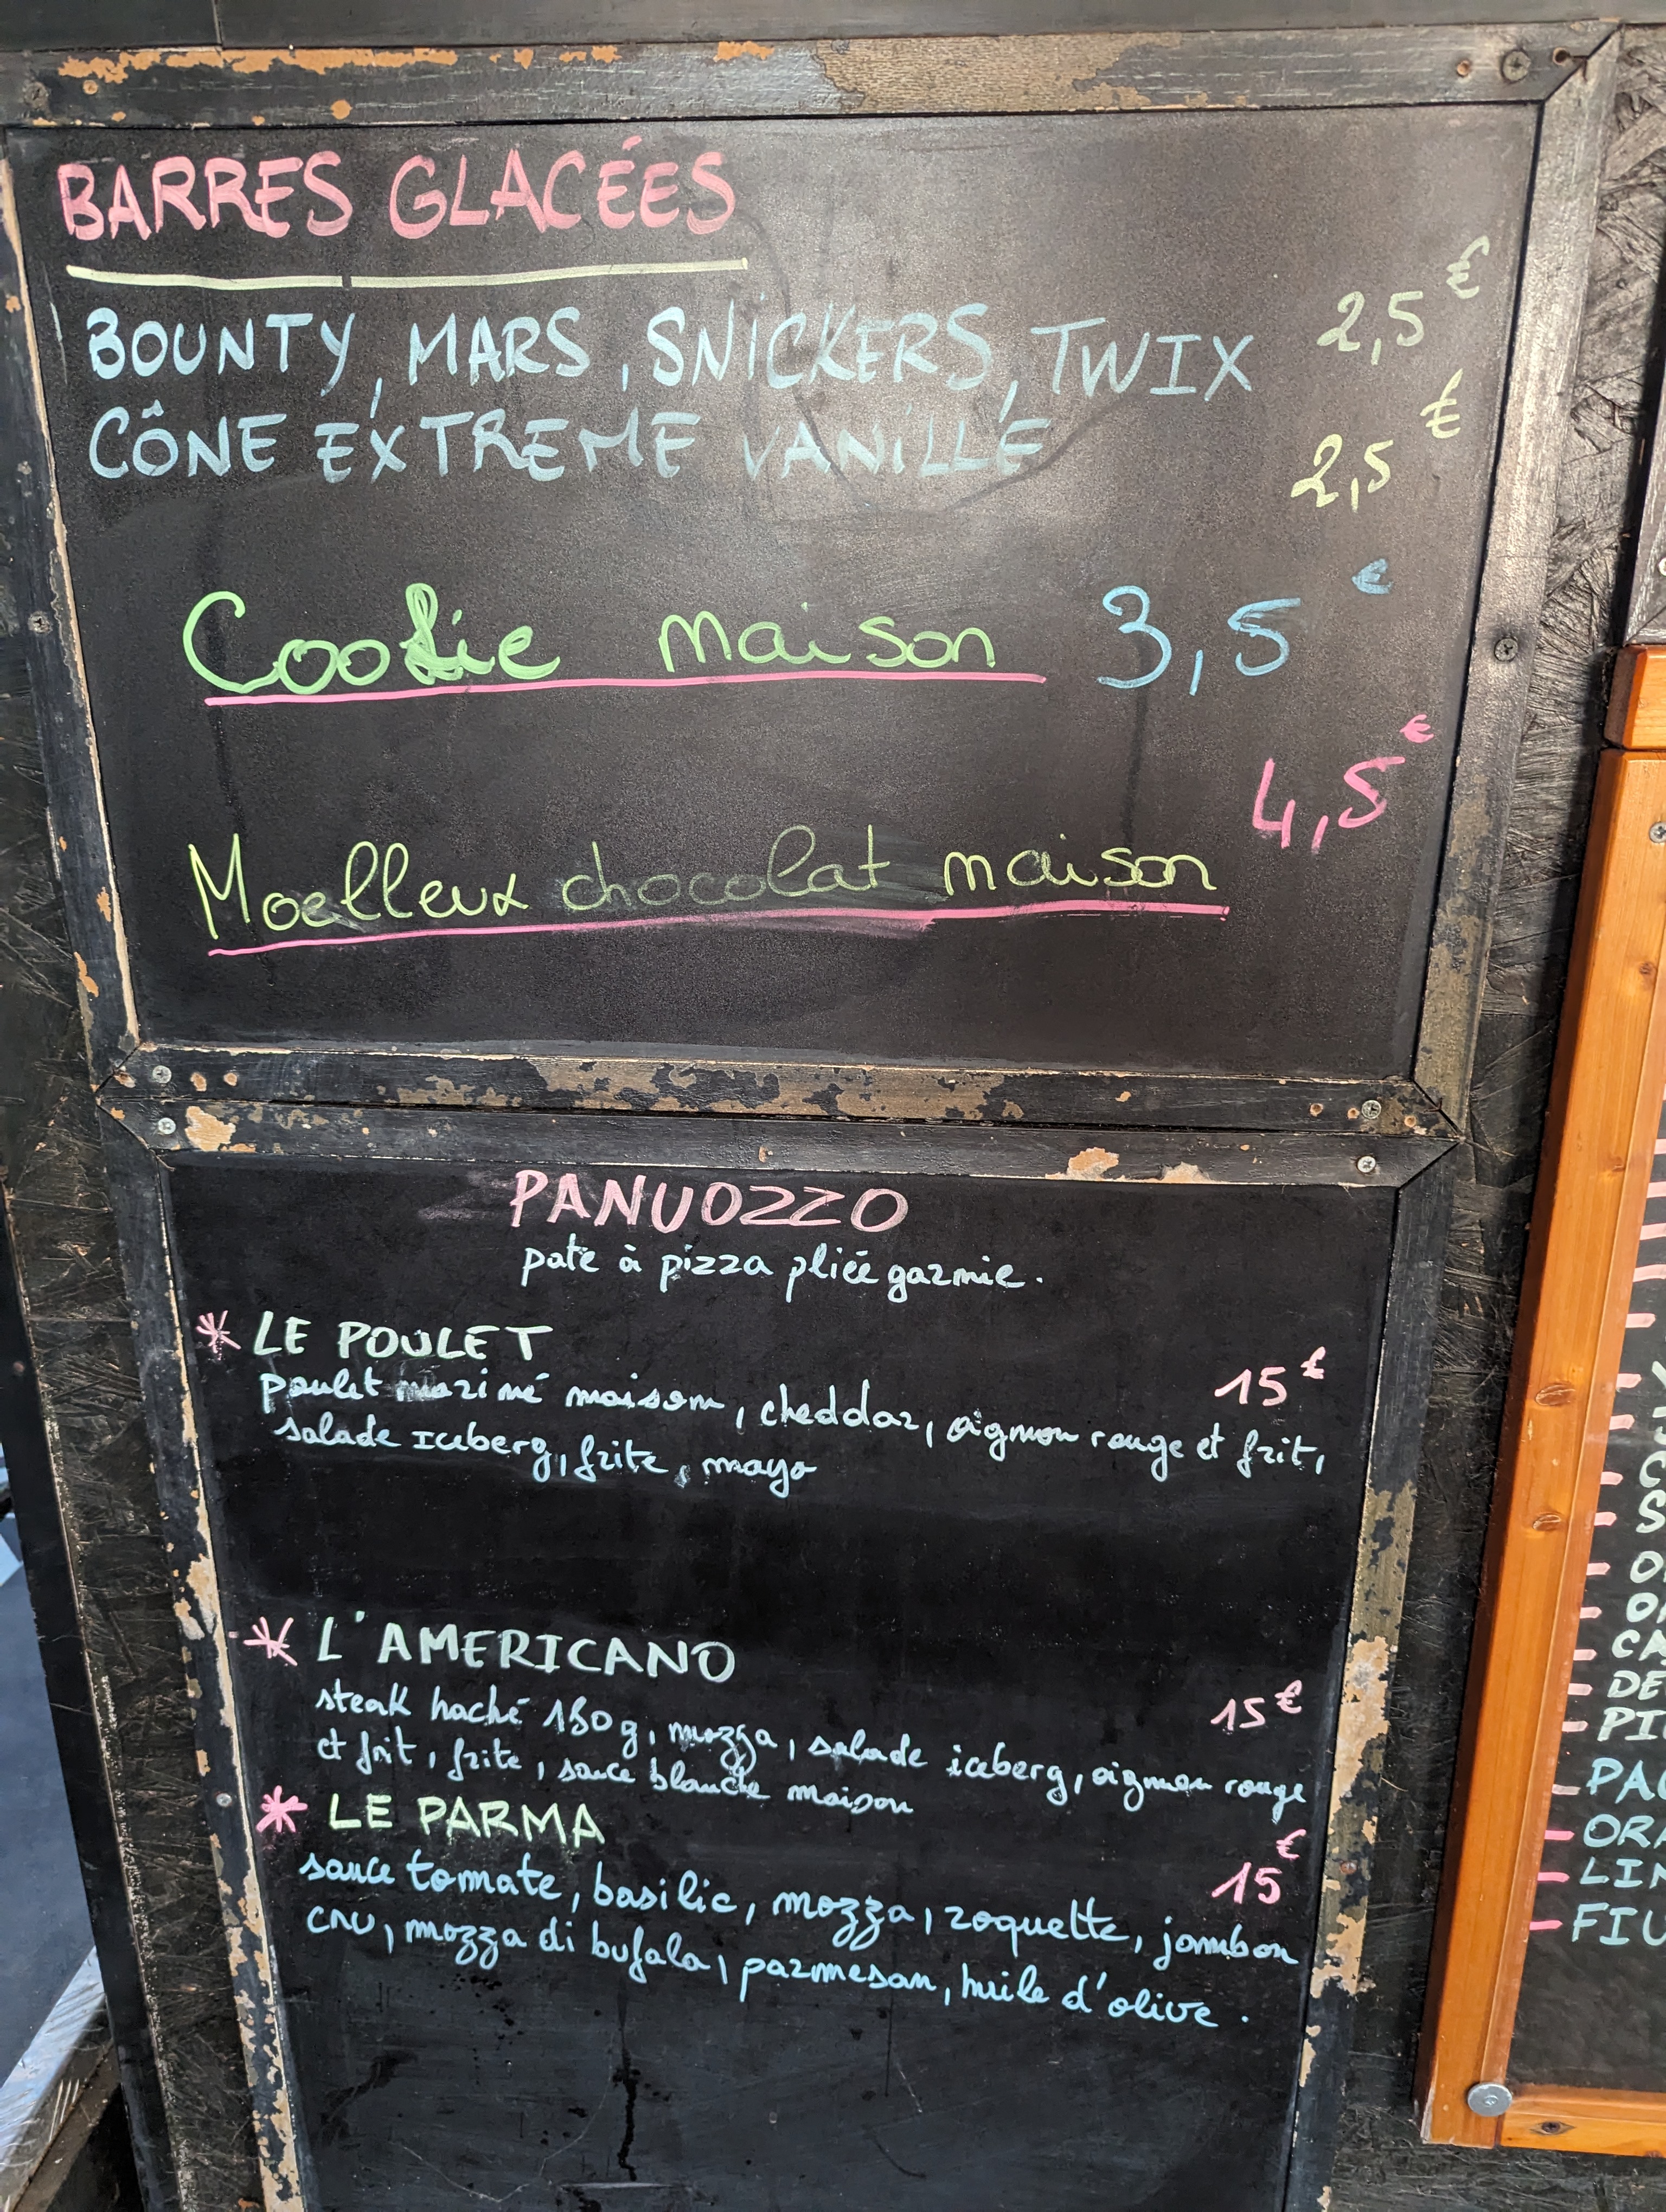 BARRES GLACÉES
BOUNTY, MARS, SNICKERS, TWIX 2,5€
CÔNE EXTREME VANILLE 2,5€
Cookie maison 3,5€
4,5€
Moelleux chocolat maison
PANUOZZO
pate à pizza pliée garnie.
* LE POULET
15€
poulet mariné maison, cheddar, oignon rouge et frit,
salade Iceberg, frite, mayo
* L'AMERICANO
15€
steak haché 180g, mozza, salade iceberg, oignon rouge
et frit, frite, sauce blanche maison
* LE PARMA
15€
sauce tomate, basilic, mozza, roquette, jambon
cru, mozza di bufala, parmesan, huile d'olive.